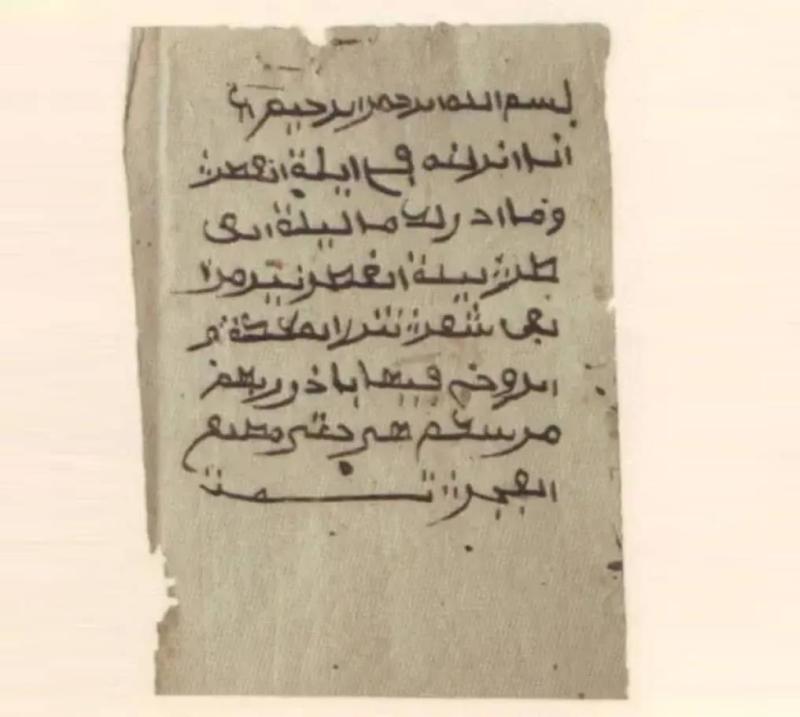 بسم الله الرحمن الرحيم
انا انزلنه في ليلة القدر
وما ادرىك ما ليلة الق
در ليلة القدر خير من ا
لف شهر تنزل الملىكة و
الروح فيها باذن ربهم
من كل امر سلم هي حتى مطلع
الفجر تمت